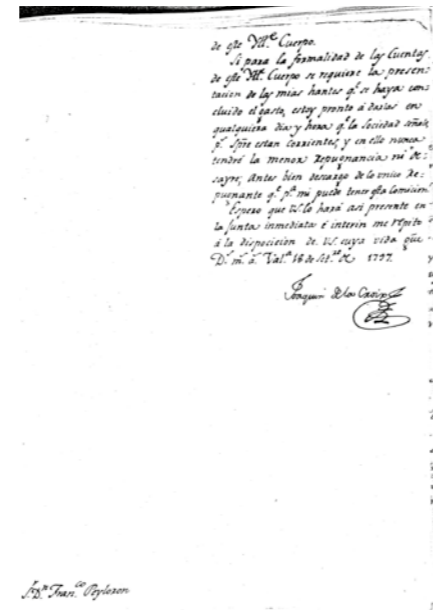 de este Ill.e Cuerpo.
Si para la formalidad de las Cuentas
de este Ill.e Cuerpo se requiere la presen=
tacion de las mias hantes q.e se haya con
cluido el gasto, estoy pronto á darlas en
qualquiera dia y hora q.e la Sociedad señale
p.s Spre estan Corrientes, y en ello nunca
tendré la menor Repugnancia ni de=
sayre; Antes bien descargo de lo unico Re=
pugnante q.e p.a mi puede tener esta Comision
Espero que V.S. lo hará asi presente en
la Junta inmediata é interin me repito
á la disposicion de V.S. cuya vida gue
D.s m.s a.s Val.a 18 de Set.re de 1797
Joaquin de la Croix
S.r D.n Fran.co Peyleron